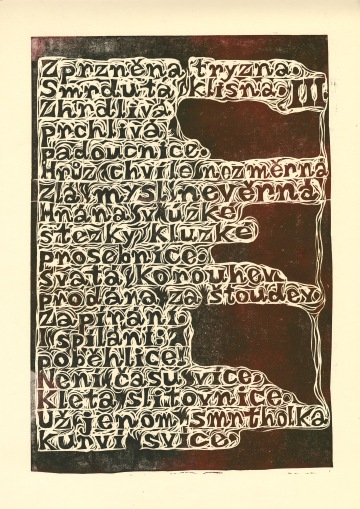 Zprzněna tryzna.
Smrdutá klisna. III
Zhrdlivá
prchlivá
padoucnice.
Hrůz chvíle nezměrná
zlá mysl nevěrná
Hnána v úzké
stezky kluzké
prosebnice.
Svatá Korouhev
prodána za štoudev
Zapírání
i spílání:
poběhlice!
Není času více.
Kletá slitovnice.
Už jenom smrtholka
kurví svíce.